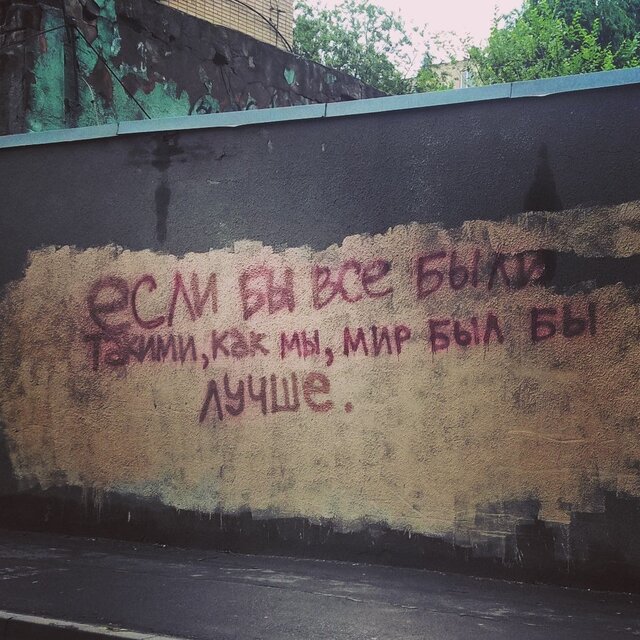 если бы все были
такими, как мы, мир был бы
лучше.